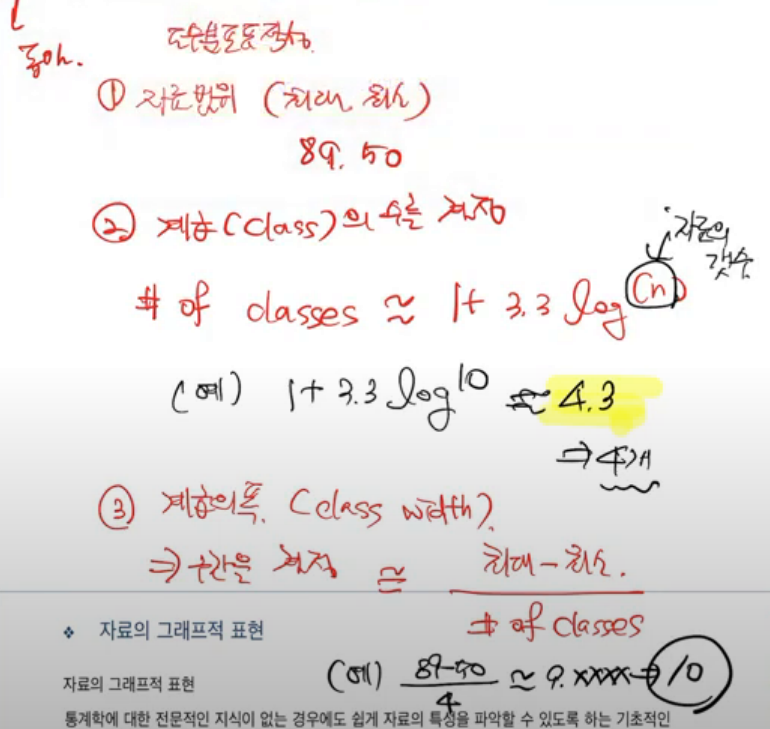 통계.
도수분포표작성.
① 자료범위 (최대, 최소)
89. 50
② 계층(class)의 수를 결정
자료의
갯수
# of classes ≈ 1+ 3.3 log(n)
(예) 1+ 3.3 log10 ≈ 4.3
⇒ 4개
③ 계층의폭. (class width).
⇒ 구간을 결정 ≅ 최대-최소.
# of classes
❖ 자료의 그래프적 표현
(예) 89-50 / 4 ≈ 9.xxxx ⇒ 10
자료의 그래프적 표현
통계학에 대한 전문적인 지식이 없는 경우에도 쉽게 자료의 특성을 파악할 수 있도록 하는 기초적인